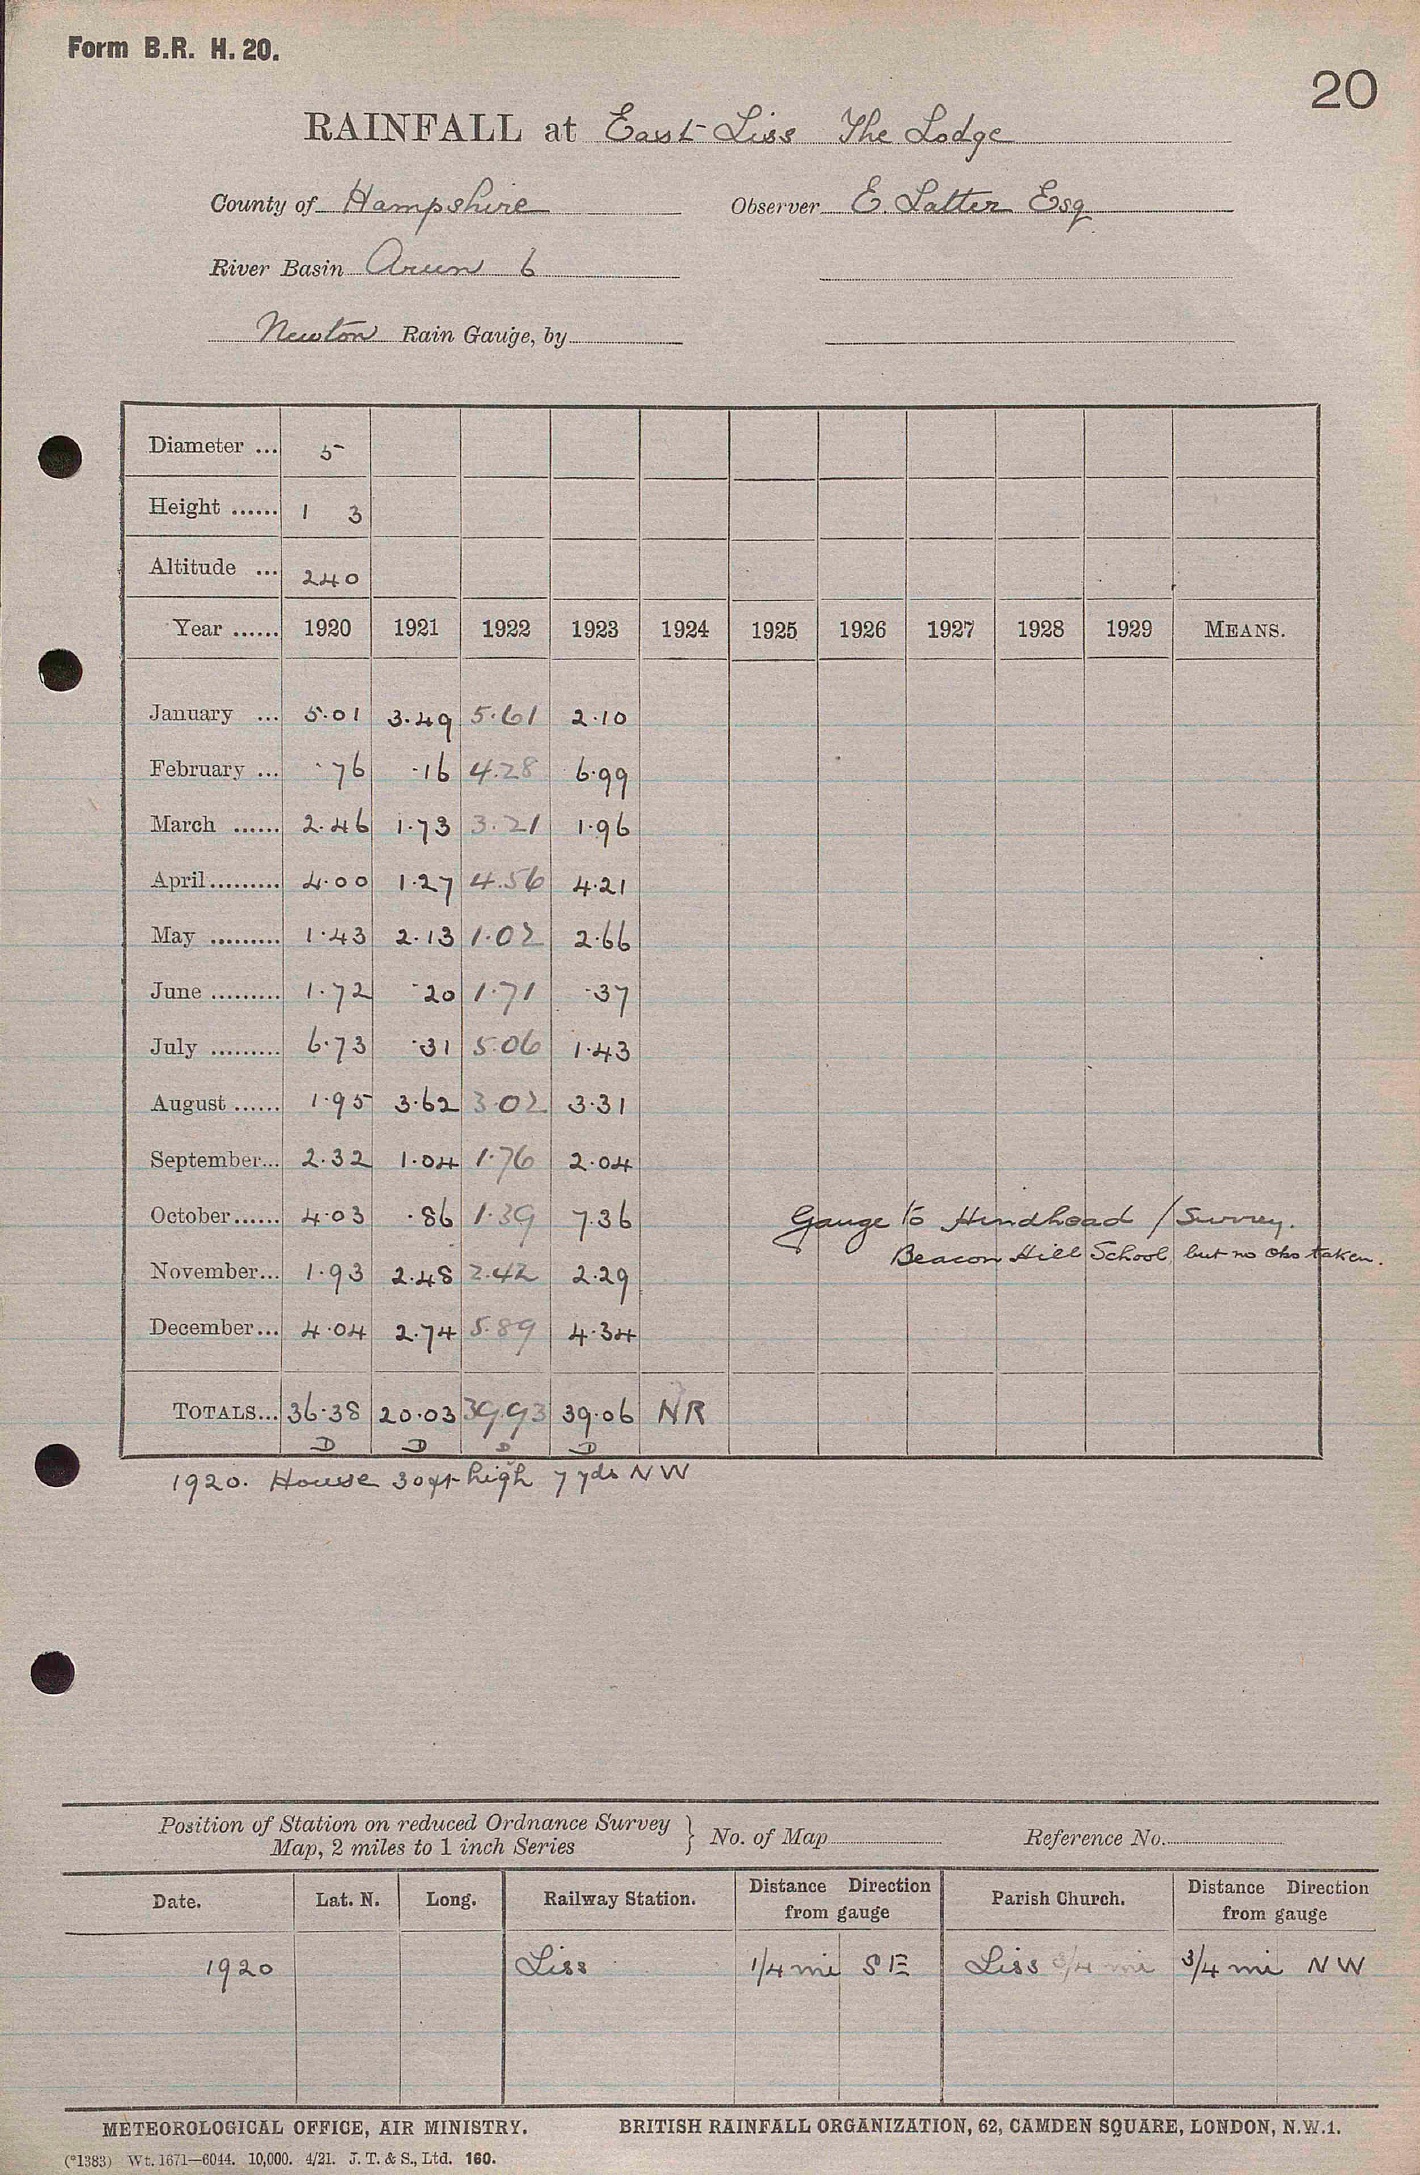 Form B.R. H. 20.
20
RAINFALL at East Liss The Lodge
County of Hampshire Observer E. Latter Esq
River Basin Arun 6
Newton Rain Gauge, by
Diameter ... 5
Height ...... 1 3
Altitude ... 240
Year ...... 1920 1921 1922 1923 1924 1925 1926 1927 1928 1929 MEANS.
January ... 5.01 3.49 5.61 2.10
February ... .76 .16 4.28 6.99
March ...... 2.46 1.73 3.21 1.96
April ......... 4.00 1.27 4.56 4.21
May ......... 1.43 2.13 1.02 2.66
June ......... 1.72 .20 1.71 .37
July ......... 6.73 .31 5.06 1.43
August ...... 1.95 3.62 3.02 3.31
September... 2.32 1.04 1.76 2.04
October...... 4.03 .86 1.39 7.36 Gauge to Hindhead / Surrey.
Beacon Hill School, but no obs taken.
November... 1.93 2.48 2.42 2.29
December... 4.04 2.74 5.89 4.34
TOTALS... 36.38 20.03 39.93 39.06 NR
D D D D
1920. House 30ft high 7 yds NW
Position of Station on reduced Ordnance Survey
Map, 2 miles to 1 inch Series } No. of Map Reference No.
Date. Lat. N. Long. Railway Station. Distance Direction from gauge Parish Church. Distance Direction from gauge
1920 Liss 1/4 mi SE Liss 3/4 mi 3/4 mi NW
METEOROLOGICAL OFFICE, AIR MINISTRY. BRITISH RAINFALL ORGANIZATION, 62, CAMDEN SQUARE, LONDON, N.W.1.
(*1383) Wt. 1671—6044. 10,000. 4/21. J. T. & S., Ltd. 160.